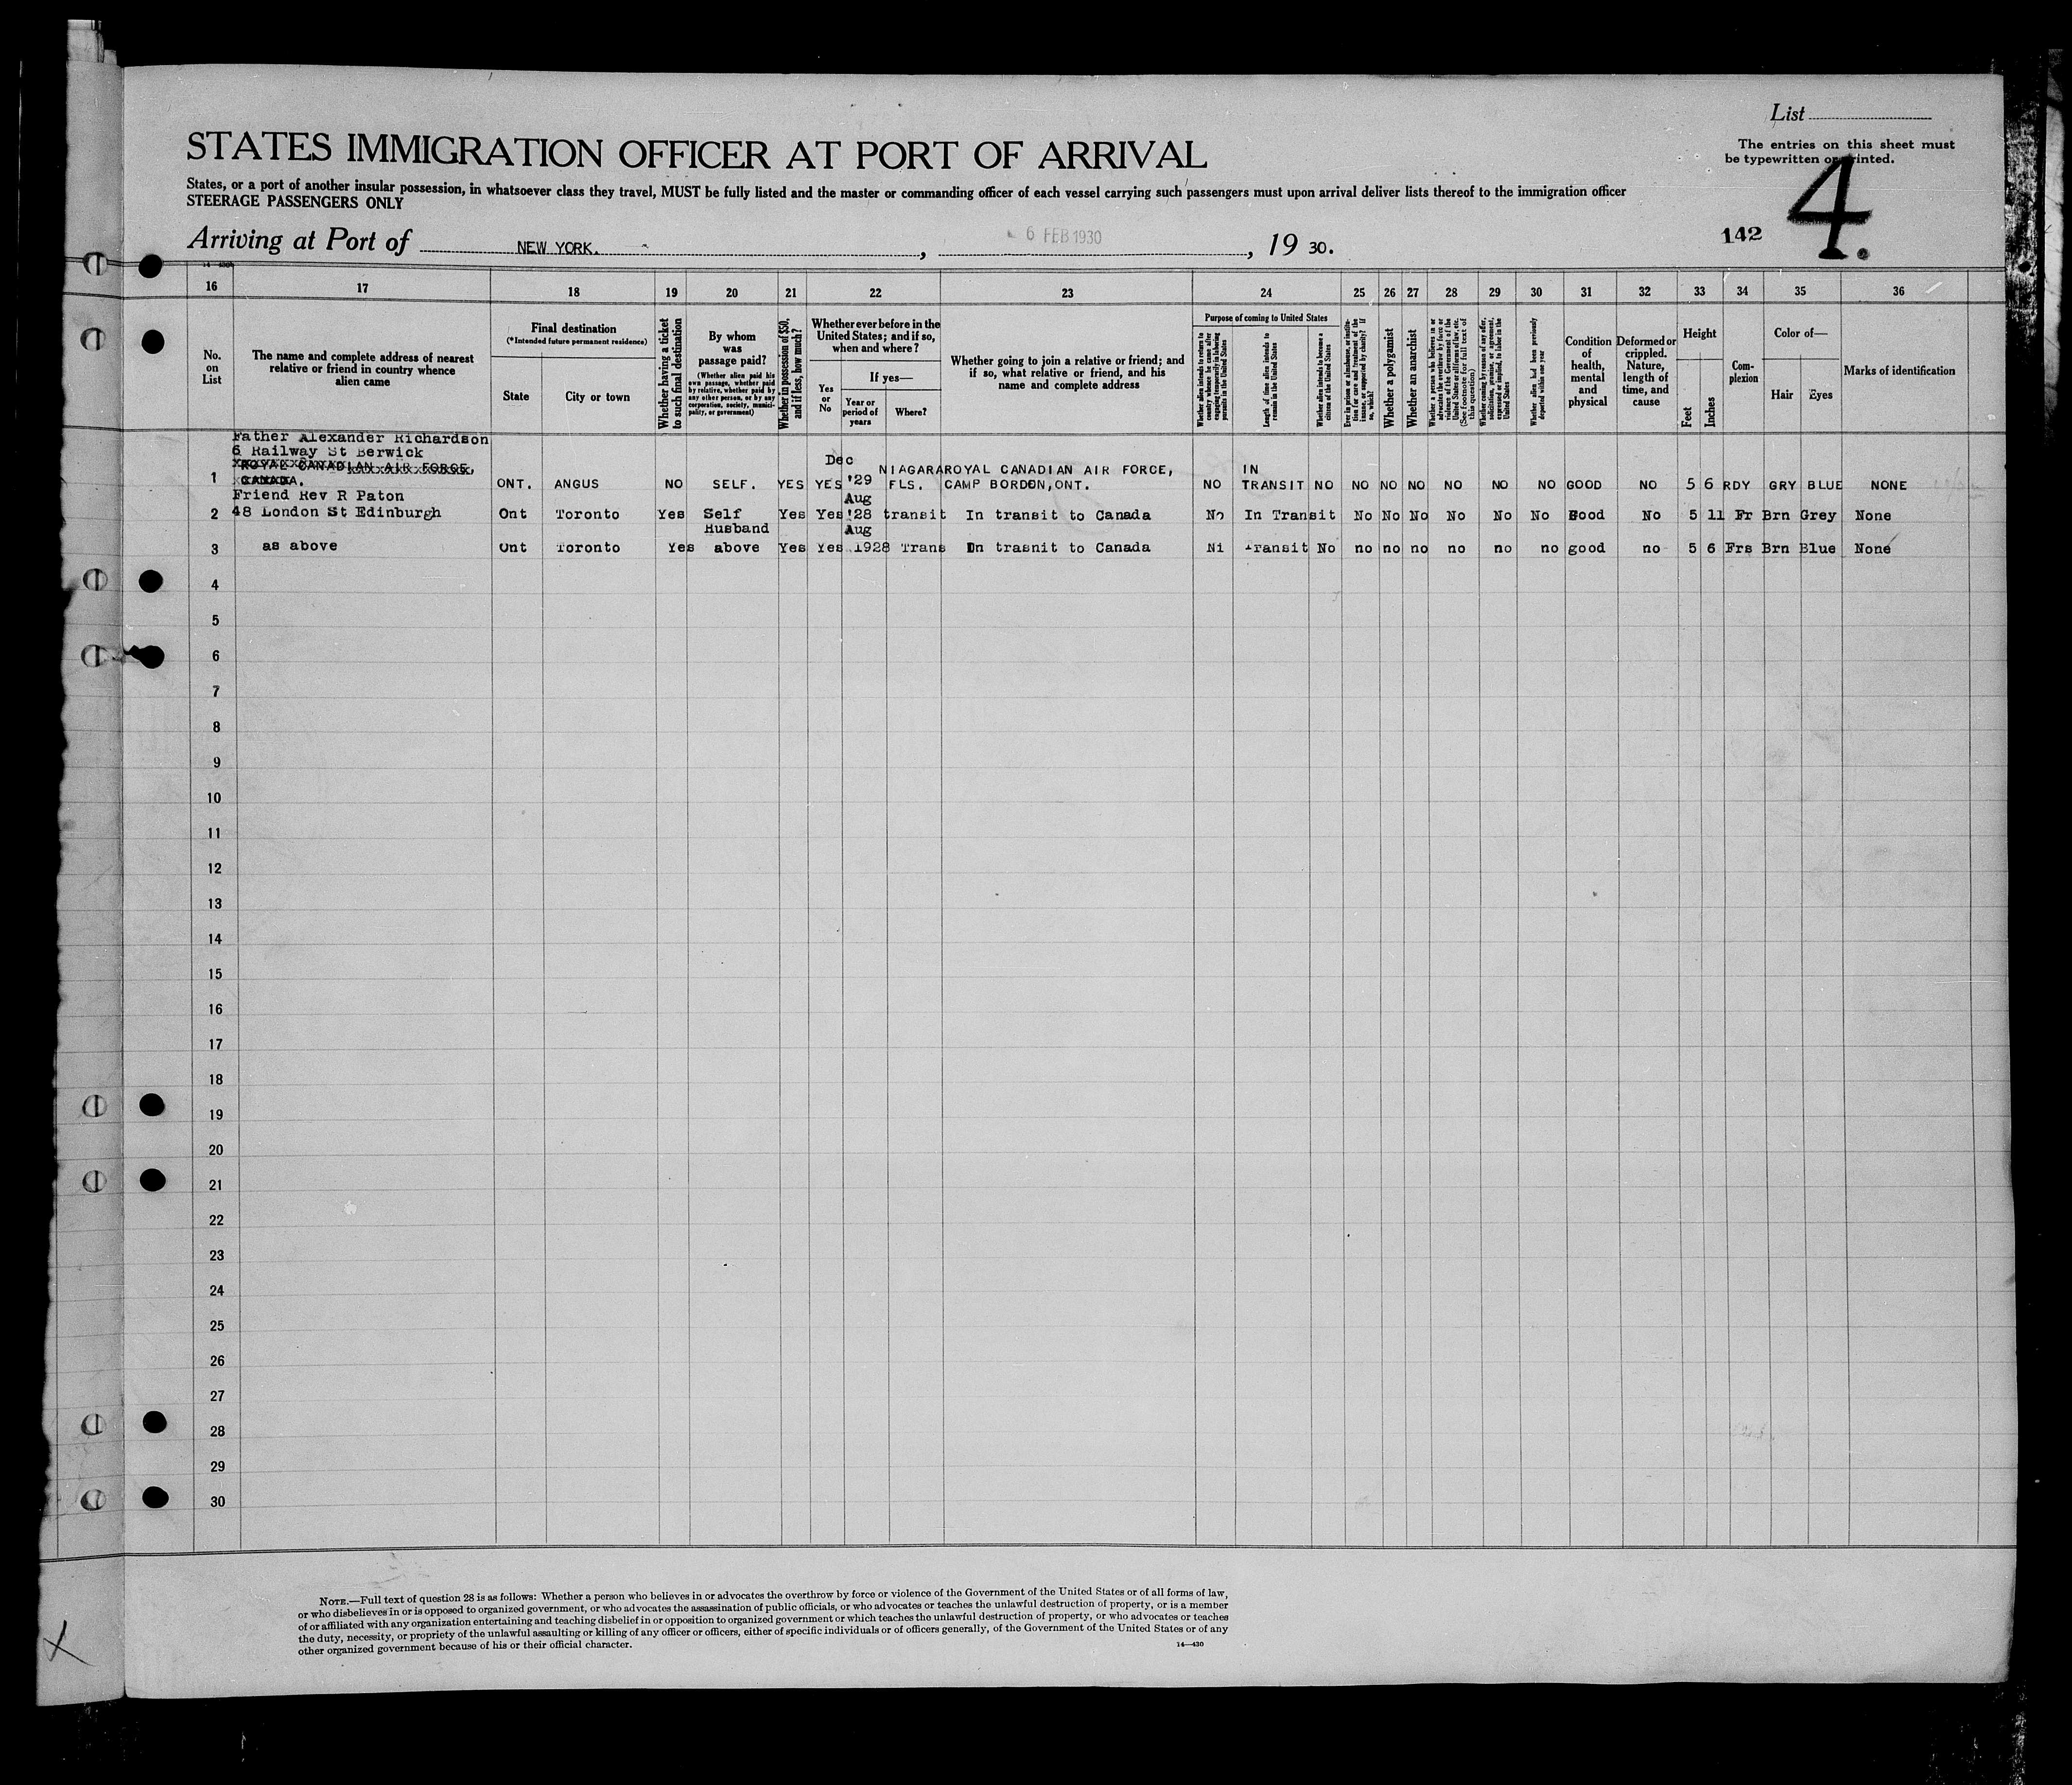 List
STATES IMMIGRATION OFFICER AT PORT OF ARRIVAL
The entries on this sheet must
be typewritten or printed.
States, or a port of another insular possession, in whatsoever class they travel, MUST be fully listed and the master or commanding officer of each vessel carrying such passengers must upon arrival deliver lists thereof to the immigration officer
STEERAGE PASSENGERS ONLY
4.
142
Arriving at Port of NEW YORK. , 6 FEB 1930 , 19 30.
16 17 18 19 20 21 22 23 24 25 26 27 28 29 30 31 32 33 34 35 36
No. on List
The name and complete address of nearest relative or friend in country whence alien came
Final destination
(*Intended future permanent residence)
State
City or town
Whether having a ticket to such final destination
By whom was passage paid?
(Whether alien paid his own passage, whether paid by relative, whether paid by any other person, or by any corporation, society, municipality, or government)
Whether in possession of $50, and if less, how much?
Whether ever before in the United States; and if so, when and where?
Yes or No
If yes—
Year or period of years
Where?
Whether going to join a relative or friend; and if so, what relative or friend, and his name and complete address
Purpose of coming to United States
Whether alien intends to return to country whence he came after engaging temporarily in laboring pursuits in the United States
Length of time alien intends to remain in the United States
Whether alien intends to become a citizen of the United States
Ever in prison or almshouse, or institution for care and treatment of the insane, or supported by charity? If so, which?
Whether a polygamist
Whether an anarchist
Whether a person who believes in or advocates the overthrow by force or violence of the Government of the United States or all forms of law, etc. (See footnote for full text of this question)
Whether coming by reason of any offer, solicitation, promise, or agreement, expressed or implied, to labor in the United States
Whether alien had been previously deported within one year
Condition of health, mental and physical
Deformed or crippled. Nature, length of time, and cause
Height
Feet
Inches
Complexion
Color of—
Hair
Eyes
Marks of identification
Father Alexander Richardson
6 Railway St Berwick
ROYAL CANADIAN AIR FORCE,
CANADA.
1 ONT. ANGUS NO SELF. YES YES Dec '29 NIAGARA FLS. ROYAL CANADIAN AIR FORCE, CAMP BORDON,ONT. NO IN TRANSIT NO NO NO NO NO NO NO GOOD NO 5 6 RDY GRY BLUE NONE
Friend Rev R Paton
2 48 London St Edinburgh Ont Toronto Yes Self Yes Yes Aug '28 transit In transit to Canada No In Transit No No No No No No Good No 5 11 Fr Brn Grey None
3 as above Ont Toronto Yes Husband above Yes Yes Aug 1928 Trans In trasnit to Canada Ni Transit No no no no no no no good no 5 6 Frs Brn Blue None
4
5
6
7
8
9
10
11
12
13
14
15
16
17
18
19
20
21
22
23
24
25
26
27
28
29
30
NOTE.—Full text of question 28 is as follows: Whether a person who believes in or advocates the overthrow by force or violence of the Government of the United States or of all forms of law,
or who disbelieves in or is opposed to organized government, or who advocates the assassination of public officials, or who advocates or teaches the unlawful destruction of property, or is a member
of or affiliated with any organization entertaining and teaching disbelief in or opposition to organized government or which teaches the unlawful destruction of property, or who advocates or teaches
the duty, necessity, or propriety of the unlawful assaulting or killing of any officer or officers, either of specific individuals or of officers generally, of the Government of the United States or of any
other organized government because of his or their official character.
14—430